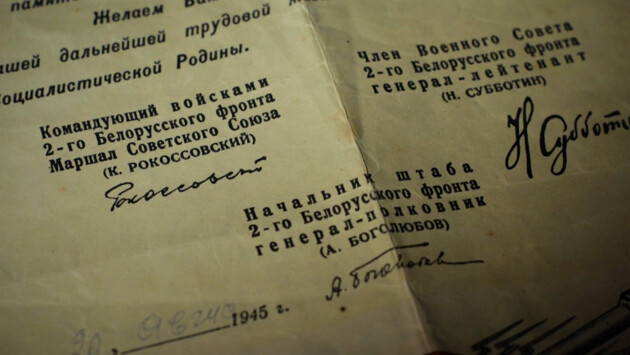 Желаем Вам
дальнейшей трудовой
Социалистической Родины.
Командующий войсками
2-го Белорусского фронта
Маршал Советского Союза
(К. РОКОССОВСКИЙ)
Рокоссовский
Член Военного Совета
2-го Белорусского фронта
генерал-лейтенант
(Н. СУББОТИН)
Н Субботи
Начальник штаба
2-го Белорусского фронта
генерал-полковник
(А. БОГОЛЮБОВ)
А. Боголюбов
20 1945 г.